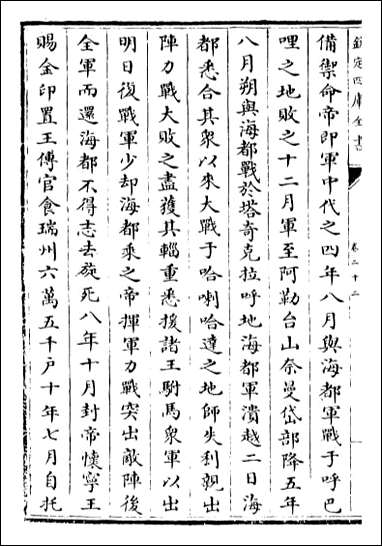 欽定四庫全書
卷二十二
備禦命帝即軍中代之四年八月與海都軍戰于呼巴
哩之地敗之十二月軍至阿勒台山奈曼岱部降五年
八月朔與海都戰於塔奇克拉呼地海都軍潰越二日海
都悉合其衆以來大戰于哈喇哈達之地師失利親出
陣力戰大敗之盡獲其輜重悉援諸王駙馬衆軍以出
明日復戰軍少却海都乘之帝揮軍力戰突出敵陣後
全軍而還海都不得志去旋死八年十月封帝懷寧王
賜金印置王傅官食瑞州六萬五千户十年七月自托